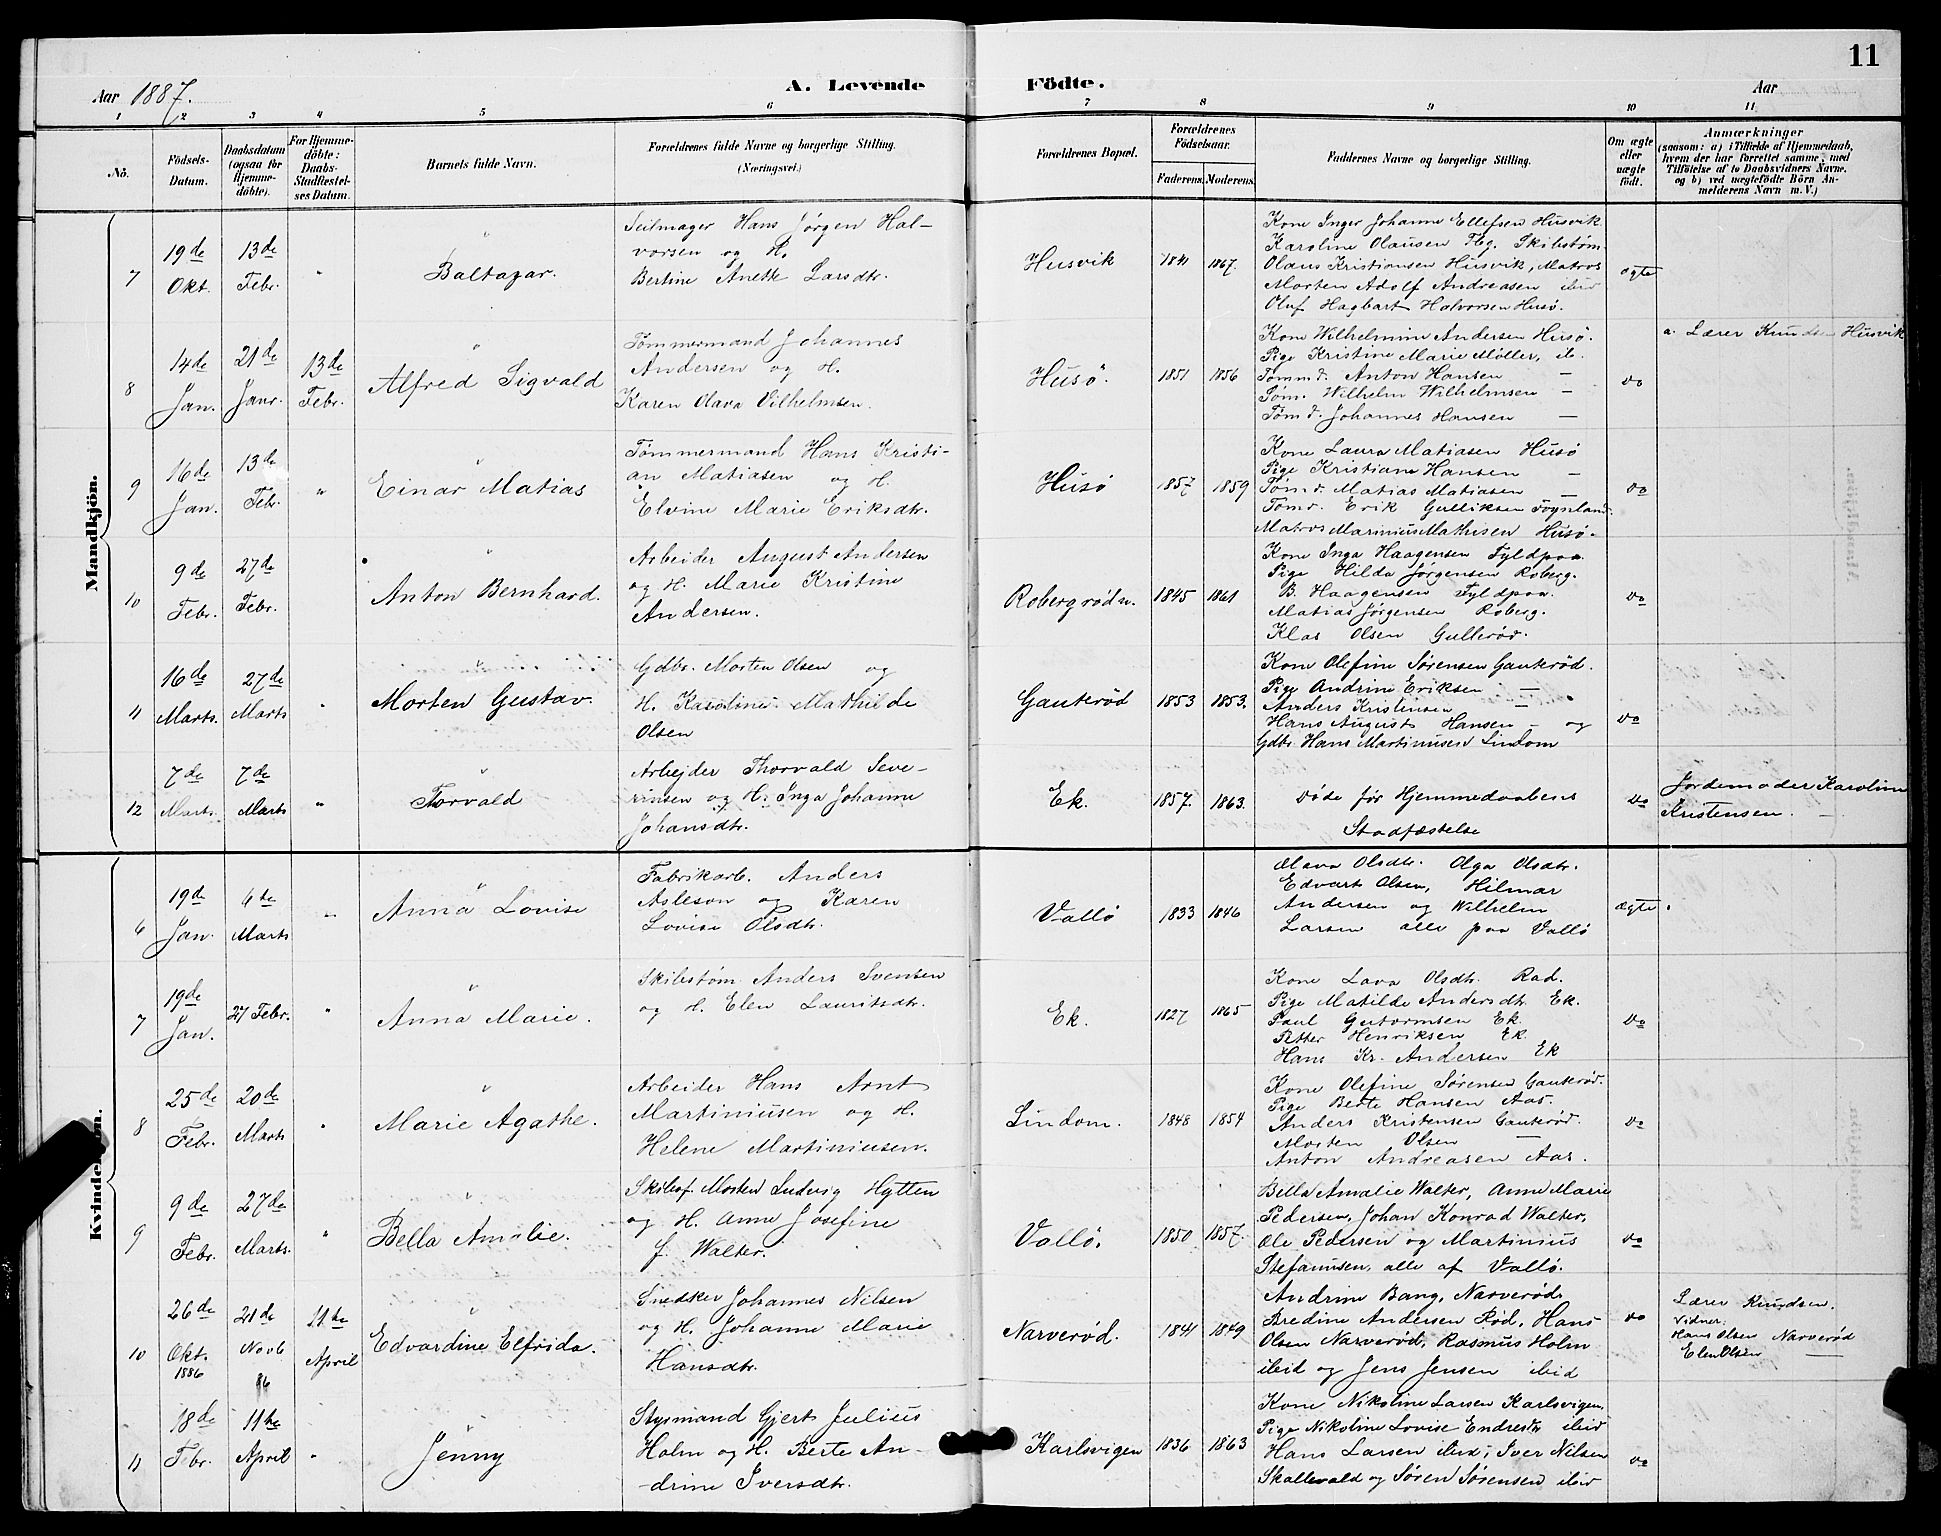 11
Aar 1887.
A. Levende Födte.
Aar
1 2 3 4 5 6 7 8 9 10 11
No.
Födsels-Datum.
Daabsdatum (ogsaa for Hjemme-döbte).
For Hjemme-döbte: Daabs-Stadfestel-ses Datum.
Barnets fulde Navn.
Forældrenes fulde Navne og borgerlige Stilling.
(Næringsvei.)
Forældrenes Bopæl.
Forældrenes Födselsaar.
Faderens. Moderens.
Faddernes Navne og borgerlige Stilling.
Om ægte eller uægte födt.
Anmærkninger
(saasom: a) i Tilfælde af Hjemmedaab, hvem der har forrettet samme, med Tilföielse af to Daabsvidners Navne, og b) ved uægtefödte Börn An-melderens Navn m. V.)
Mandkjön.
7
19de Okt.
13de Febr.
"
Baltazar.
Seilmager Hans Jørgen Hal-
vorsen og H.
Bertine Anette Larsdtr.
Husvik
1841 1867.
Kone Inger Johanne Ellefsen Husvik
Karoline Olausen Teg. Skibstøm.
Olaus Kristiansen Husvik, Matros
Morten Adolf Andreasen ibid
Oluf Hagbart Halvorsen Husø.
ægte
8
14de Jan.
21de Janr.
13de Febr.
Alfred Sigvald
Tømmermand Johannes
Andersen og H.
Karen Olava Vilhelmsen.
Husö.
1851 1856
Kone Wilhelmine Andersen Husø.
Pige Kristine Marie Møller, ib.
Tømmd. Anton Hansen —
Søm. Wilhelm Wilhelmsen —
Tømd. Johannes Hansen —
do
a. Lærer Knudsen Husvik
9
16de Jan.
13de Febr.
"
Einar Matias
Tømmermand Hans Kristi-
an Matiasen og H.
Elvine Marie Eriksdtr.
Husö
1857 1859
Kone Laura Matiasen Husø
Pige Kristiane Hansen —
Tømd. Matias Matiasen —
Tømd. Erik Gulliksen Føynland.
Matros Marinius Mathisen Husø.
do
10
9de Febr.
27de Febr.
Anton Bernhard.
Arbeider August Andersen
og H. Marie Kristine
Andersen.
Robergrødn.
1845 1861
Kone Inga Haagensen Fyldpaa.
Pige Hilda Jørgensen Roberg.
B. Haagensen Fyldpaa.
Matias Jørgensen Roberg.
Klas Olsen Gullerød.
do
11
16de Marts.
27de Marts
"
Morten Gustav.
Gdbr. Morten Olsen og
H. Karoline Mathilde
Olsen
Gauterød
1853 1853.
Kone Olefine Sørensen Gauterød.
Pige Andrine Eriksen —
Anders Kristensen —
Hans August Hansen – og
Gdbr. Hans Martinusen Lindom
do
12
7de Marts.
7de Marts
"
Torvald
Arbejder Thorvald Seve-
rinsen og H. Inga Johanne
Johansdtr.
Ek.
1857. 1863.
Døde før Hjemmedaabens
Stadfæstelse
do
Jordemoder Karoline
Kristensen. —
Kvindekjön.
6
19de Jan.
6te Marts
"
Anna Lovise
Fabrikarb. Anders
Asleson og Karen
Lovise Olsdtr.
Vallö
1833 1846
Olava Olsdtr. Olga Olsdtr.
Edvart Olsen, Hilmar
Andersen og Wilhelm
Larsen alle paa Vallö
Ægte
7
19de Jan.
27 Febr.
"
Anna Marie.
Skibstøm. Anders Svensen
og H. Elen Lauritsdtr.
Ek.
1827 1865
Kone Lava Olsdtr. Rad.
Pige Matilde Andersdtr. Ek.
Paul Gutormsen Ek.
Petter Henriksen Ek.
Hans Kr. Andersen Ek
do
8
25de Febr.
20de Marts
"
Marie Agathe.
Arbeider Hans Arnt
Martiniusen og H.
Helene Martiniusen.
Lindom.
1848 1854
Kone Olefine Sørensen Gauterød.
Pige Berte Hansen Aas.
Anders Kristensen Gauterød.
Morten Olsen —
Anton Andreasen Aas.
do
9
9de Febr.
27de Marts.
"
Bella Amalie.
Skibsf. Morten Ludvig Hytten
og H. Anne Josefine
f. Walter.
Vallö.
1850 1857.
Bella Amalie Walter, Anne Marie
Pedersen, Johan Konrad Walter,
Ole Pedersen og Martinius
Stefanusen, alle af Vallö.
do
10
26de Okt. 1886
21de Novb. 86
11te April
Edvardine Elfrida.
Snedker Johannes Nilsen
og H. Johanne Marie
Hansdtr.
Narverød.
1841 1849
Andrine Bang, Narverød,
Bredine Andersen Rød, Hans
Olsen Narverød, Rasmus Holm
ibid og Jens Jensen ibid
do
Lærer Knudsen.
Vidner.
Hans Olsen Narverød
Elen Olsen —
11
18de Febr.
11te April
"
Jenny
Stysmand Gjert Julius
Holm og H. Berte An-
drine Iversdtr.
Karlsvigen
1836 1863
Kone Nikoline Larsen Karlsvigen,
Pige Nikoline Lovise Endresdtr ibid
Hans Larsen ibid, Iver Nilsen
Skallevald og Søren Sørensen ibid
do